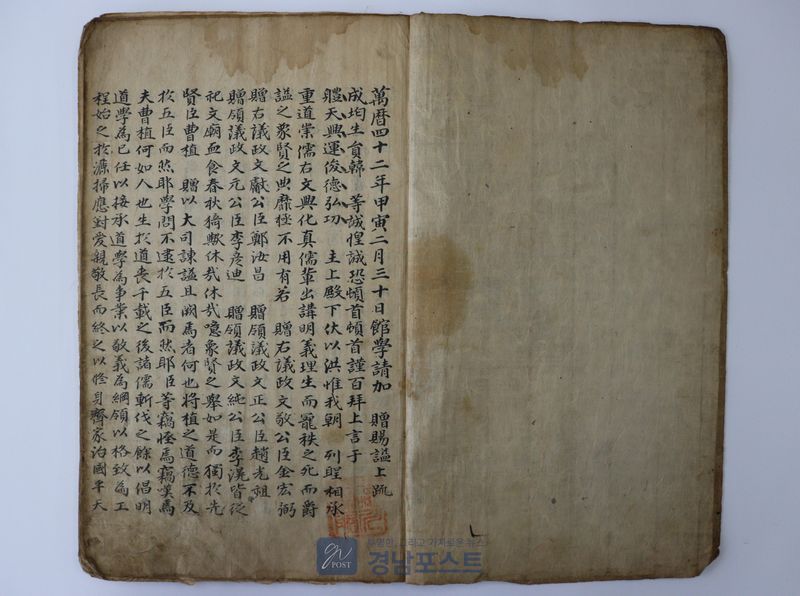 萬曆四十二年甲寅二月三十日館學請加 贈賜謚上疏
成均生貟韓 等誠惶誠恐頓首頓首謹百拜上言于
軆天興運俊德弘功 主上殿下伏以洪惟我朝 列聖相承
重道崇儒右文興化真儒輩出講明義理生而寵秩之死而爵
謚之衆賢之典靡極不用有若 贈右議政文敬公臣金宏弼
贈右議政文獻公臣鄭汝昌 贈領議政文正公臣趙光祖
贈領議政文元公臣李彦迪 贈領議政文純公臣李滉皆從
祀文廟血食春秋猗歟休哉休哉噫象賢之擧如是而獨於先
賢臣曹植 贈以大司諫謚且闕焉者何也將植之道德不及
於五臣而然耶學問不逮於五臣而然耶臣等竊恠焉竊
夫曹植何如人也生於道喪千載之後諸儒斬伐之餘以倡明
道學為已任以接承道學為事業以敬義為綱領以格致為工
程始之於灑掃應對愛親敬長而終之以修身齊家治國平天
경남포스트
POST